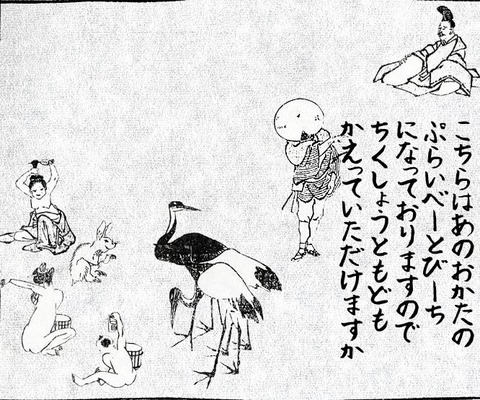 こちらはあのおかたの
ぷらいべーとびーち
になっておりますので
ちくしょうともども
かえっていただけますか